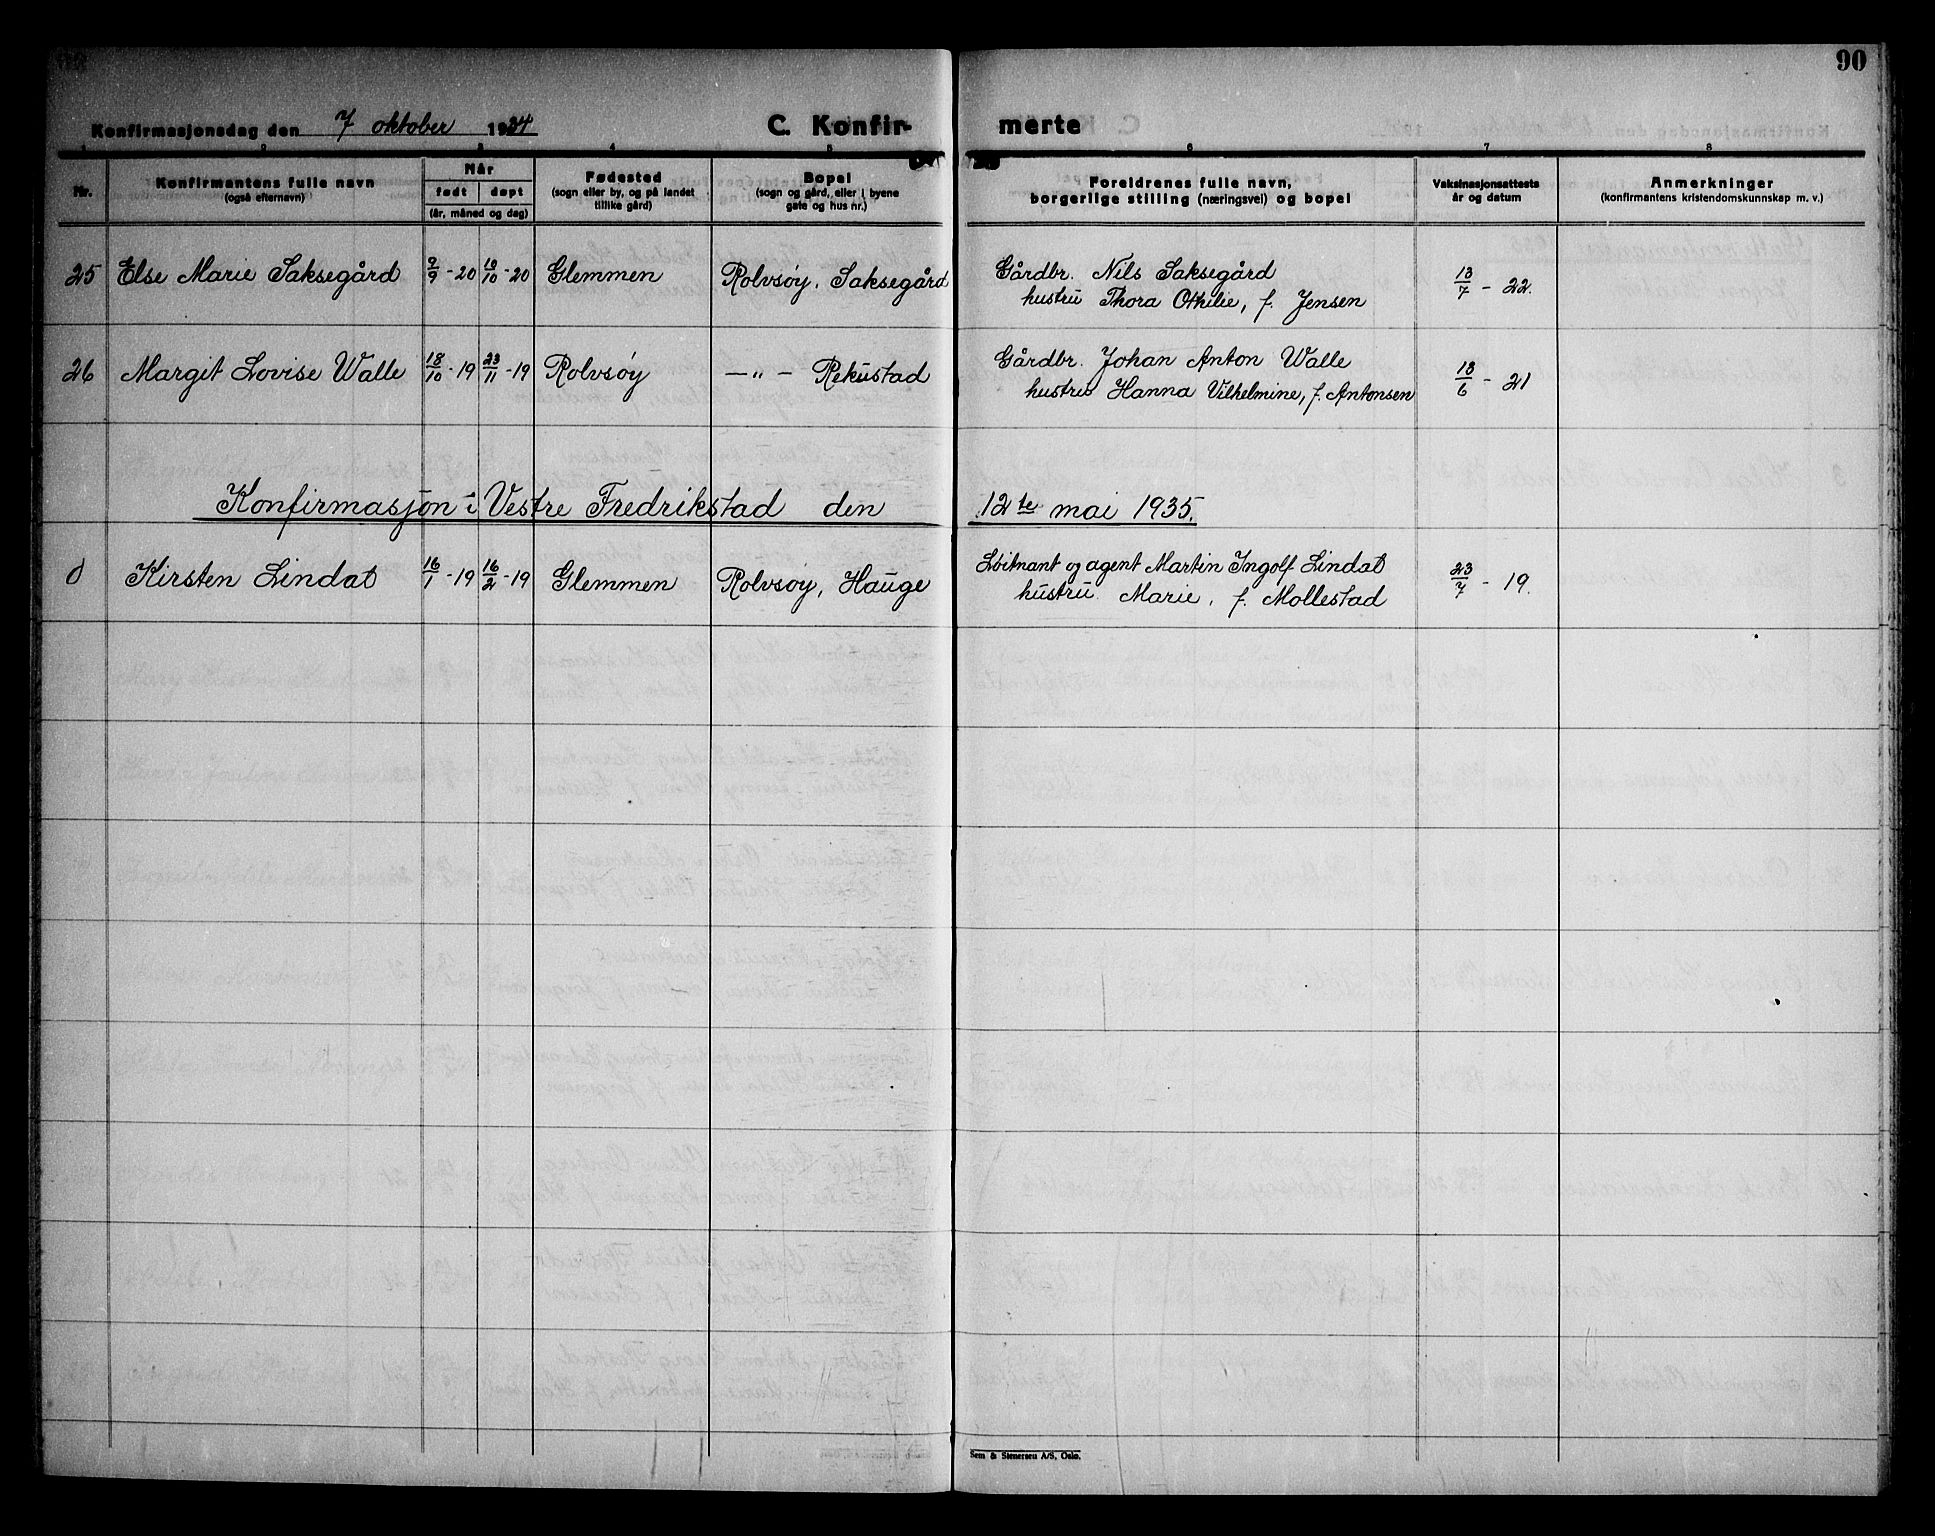 90
Konfirmasjonsdag den 7 oktober 1934 C. Konfir- merte
1 2 3 4 5 6 7 8
Nr. Konfirmantens fulle navn (også efternavn) Når født døpt (år, måned og dag) Fødested (sogn eller by, og på landet tillike gård) Bopel (sogn og gård, eller i byene gate og hus nr.) Foreldrenes fulle navn, borgerlige stilling (næringsvei) og bopel Vaksinasjonsattests år og datum Anmerkninger (konfirmantens kristendomskunnskap m. v.)
25 Else Marie Saksegård 9/9-20 10/10-20 Glemmen Rolvsøy, Saksegård Gårdbr. Nils Saksegård 13/7 - 22.
hustru Thora Othilie, f. Jensen
26 Margit Lovise Walle 18/10-19 23/11-19 Rolvsøy —„— Rekustad Gårdbr. Johan Anton Walle 13/6 - 21
hustru Hanna Vilhelmine, f. Antonsen
Konfirmasjon i Vestre Fredrikstad den 12te mai 1935.
0 Kirsten Lindat 16/1-19 16/2-19 Glemmen Rolvsøy, Hauge Løitnant og agent Martin Ingolf Lindat 23/7 - 19.
hustru Marie, f. Mollestad
Sem & Stenersen A/S, Oslo.